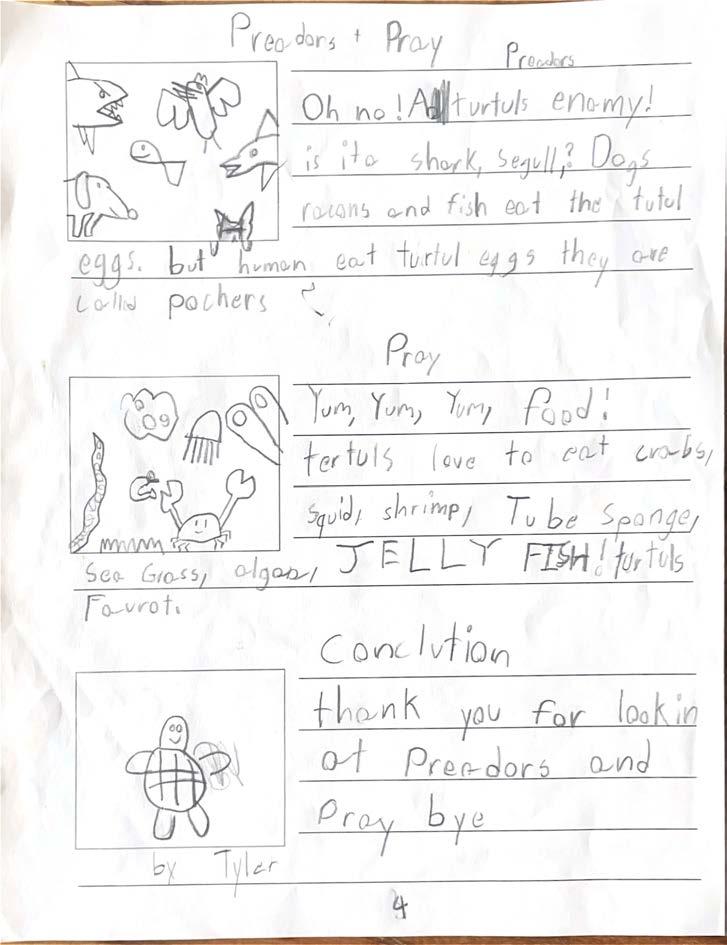 Preadors + Pray
Preadors
Oh no! A turtuls enamy!
is ita shark, segull,? Dogs
racans and fish eat the tutul
eggs. but human eat turtul eggs they are
called pochers
Pray
Yum, Yum, Yum, food!
tertuls love to eat crabs,
squid, shrimp, Tube sponge,
Sea Grass, algae, JELLY FISH! turtuls
Favrot.
Conclution
thank you for lookin
at Preadors and
Pray bye
by Tyler
4